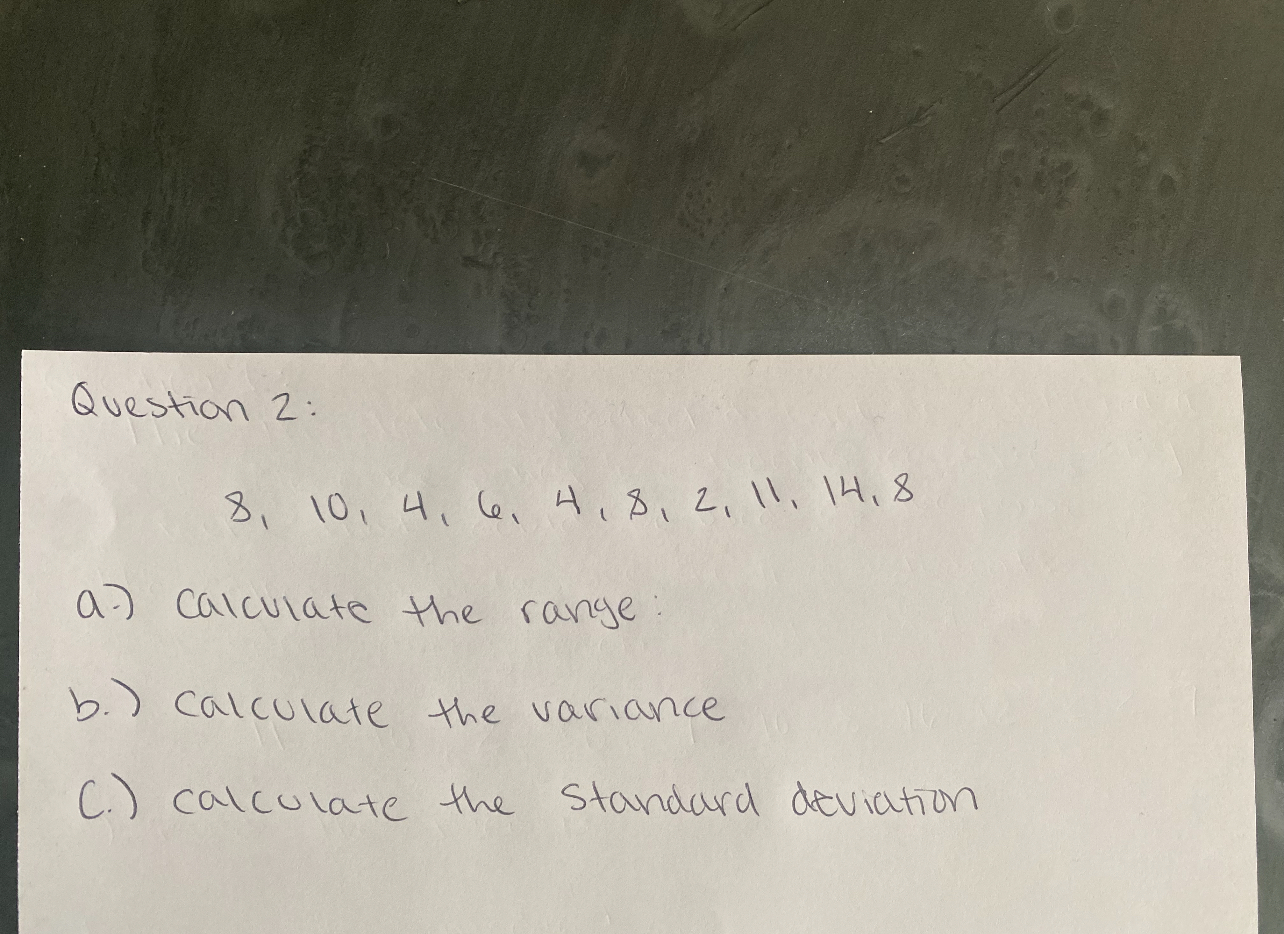 Question 2:
8, 10, 4, 6, 4, 8, 2, 11, 14, 8
a.) calculate the range:
b.) calculate the variance
C.) calculate the standard deviation